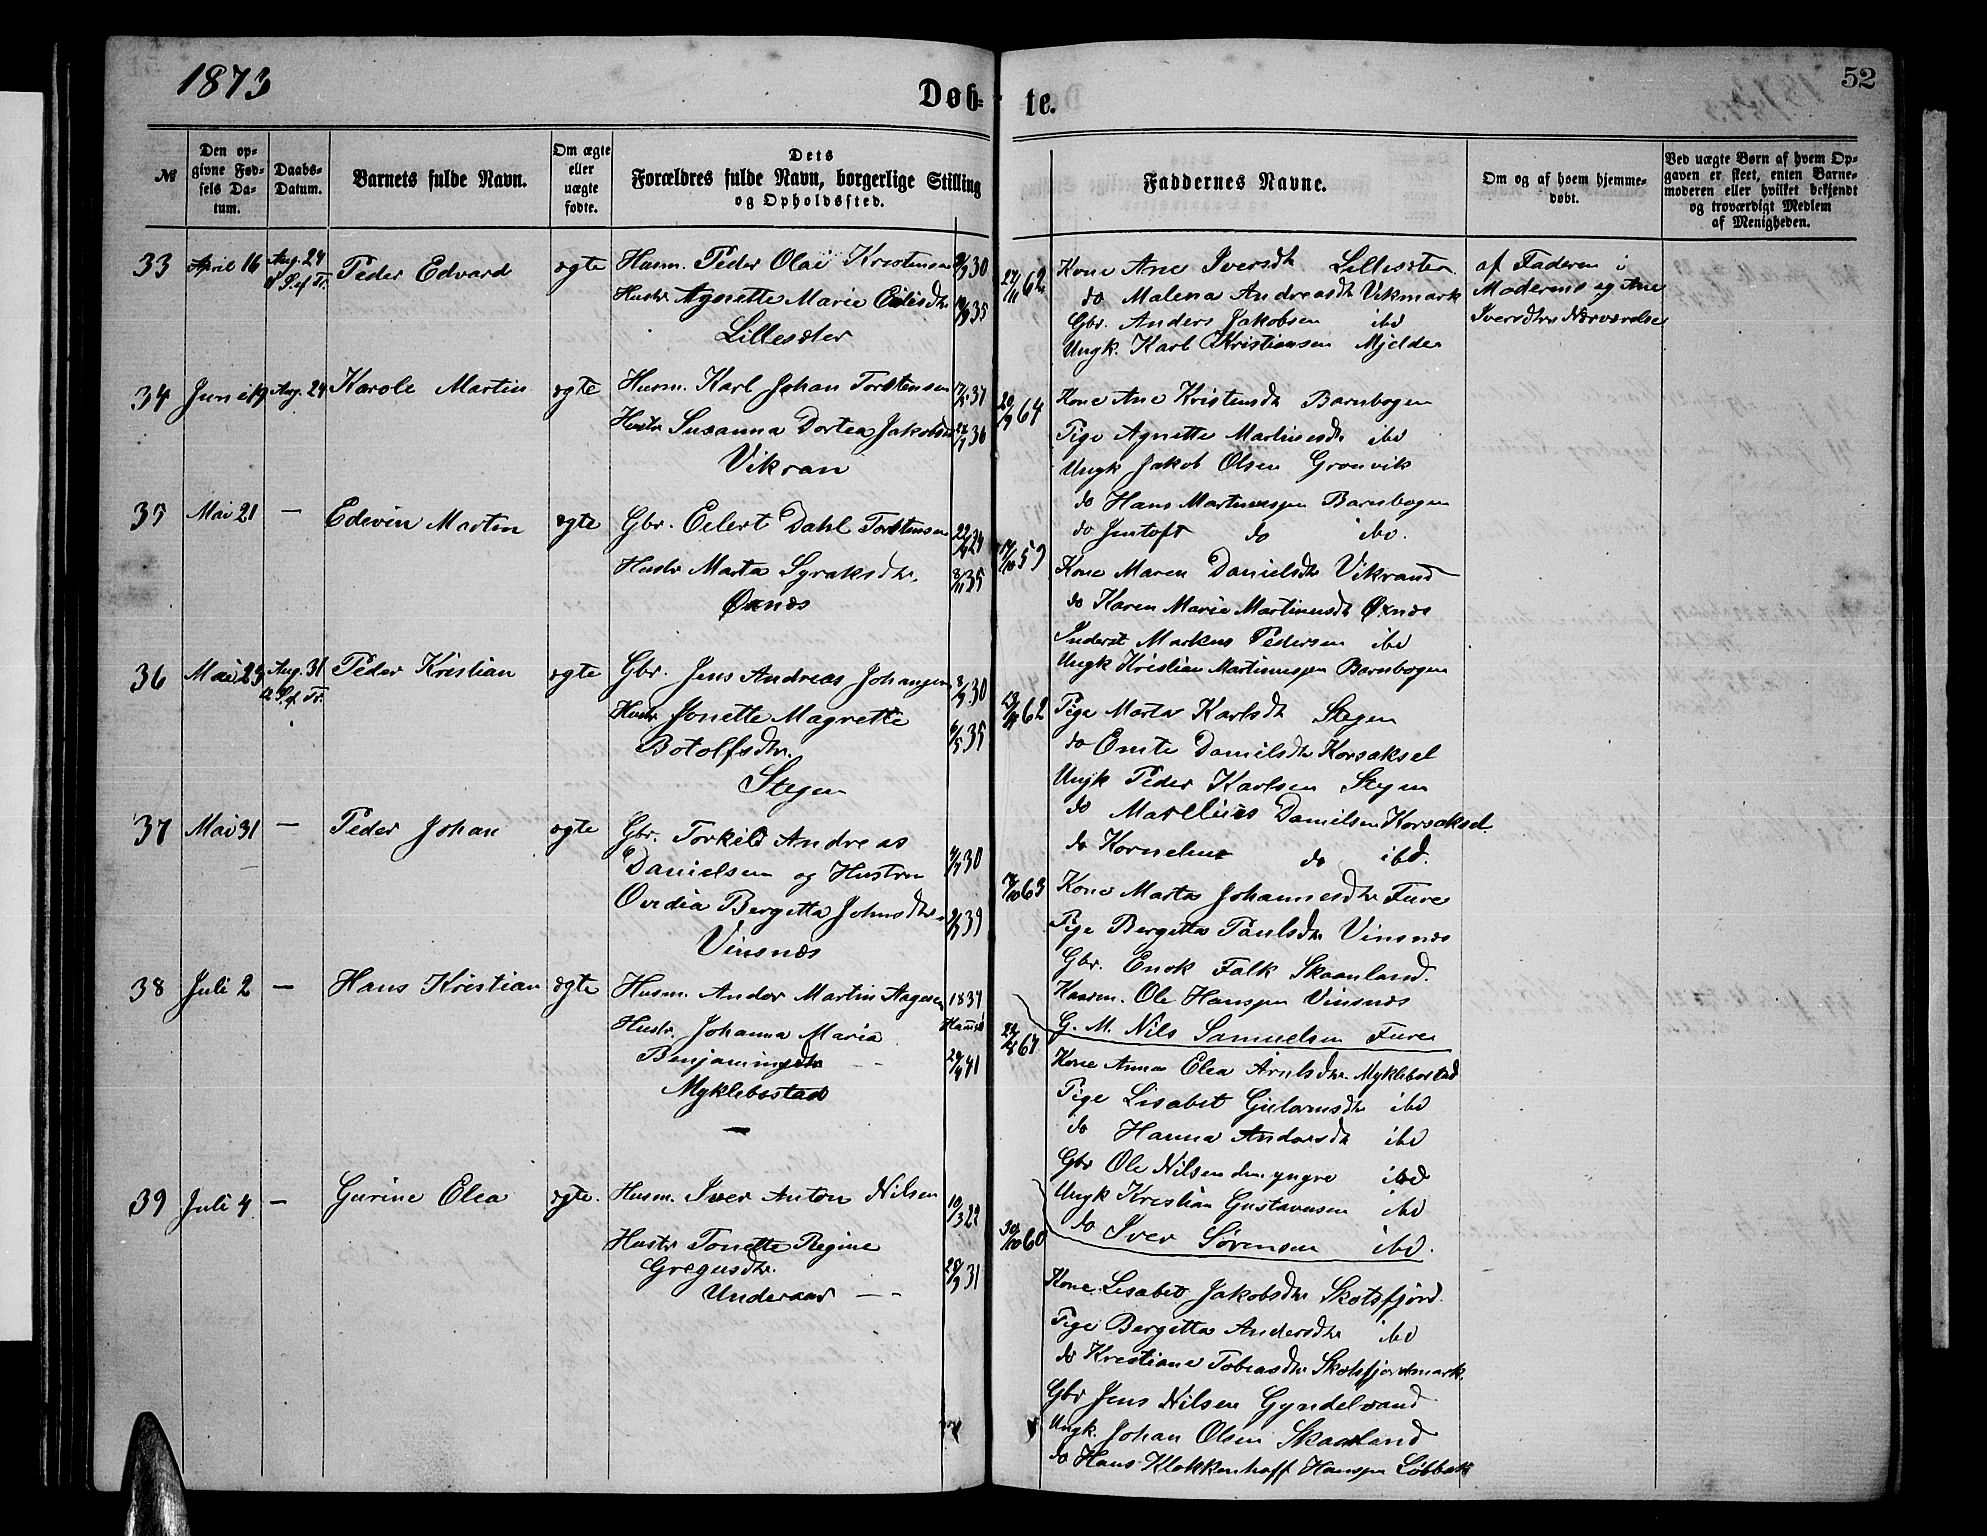 1873
Døb-
te.
52
№
Den op-
givne Fød-
sels Da-
tum.
Daabs-
Datum.
Barnets fulde Navn.
Om ægte
eller
uægte
fødte.
Dets
Forældres fulde Navn, borgerlige Stilling
og Opholdssted.
Faddernes Navne.
Om og af hvem hjemme-
døbt.
Ved uægte Børn af hvem Op-
gaven er skeet, enten Barne-
moderen eller hvilket bekjendt
og troværdigt Medlem
af Menigheden.
33 April 16 Aug. 24 Peder Edvard ægte Husm. Peder Olai Kristensen 30
Hustr Agnette Marie 35
Lillesæter
62 Kone Ane Iversdtr Lillesæter
do Malena Andreasdtr Vikmark
Gbr. Anders Jakobsen ibd
Ungk. Karl Kristiansen Mjelde
af Faderen i
Moderens og Ane
Iversdtrs Nærværelse
34 Juni 19 Aug. 24 Karole Martin ægte Husm. Karl Johan Torstensen 37
Hustr Susanna Dortea Jakobsdtr 36
Vikran
64 Kone Ane Kristensdtr Barnbogen
Pige Agnette Martinesdtr ibd
Ungk Jakob Olsen Grønvik
do Hans Martinussen Barnbogen
do Jentoft do ibd.
35 Mai 21 — Edevin Marten ægte Gbr. Eilert Dahl Torstensen 24
Hustr Marta Syraksdtr. 35
Øxnæs
59 Kone Maren Danielsdtr Vikrand
do Karen Marie Martinusdtr Øxnæs
Inderst Markus Pedersen ibd
Ungk Kristian Martinussen Barnbogen
36 Mai 23 Aug. 31 Peder Kristian ægte Gbr. Jens Andreas Johansen 30
Hustr Jonette Magrette 35
Botolfsdtr.
Stegen
62 Pige Marta Karlsdtr Stegen
do Emte Danielsdtr Korsaksel
Ungk Peder Karlsen Stegen
do Marelius Danielsen Korsaksel
do Kornelius do ibd.
37 Mai 31 — Peder Johan ægte Gbr. Torkild Andreas
Danielsen og Hustru 30
Ovedia Bergetta Johnsdtr 39
Vinsnæs
63 Kone Marta Johannesdtr Fure
Pige Bergitta Paulsdtr Vinsnæs
Gbr. Enok Falk Skaanland.
Husm. Ole Hanssen Vinsnæs
G. M. Nils Samuelsen Fure
38 Juli 2 — Hans Kristian ægte Husm. Andor Martin Aagesen 1837
Hustr Johanna Maria
Benjaminsdtr 41
Myklebostad
67 Kone Anna Elea Arntsdtr Myklebostad
Pige Lisabet ibd
do Hanna Andersdtr ibd
Gbr Ole Nilsen den yngre ibd
Ungk Kristian Gustavusen ibd
do Iver Sørensen ibd.
39 Juli 4 — Gurine Elea ægte. Husm. Iver Anton Nilsen 10/3 22
Hustr Tonette Regine
Gregusdtr. 31
Underaas
60
Kone Lisabet Jakobsdtr Skotsfjord
Pige Bergitta Andersdtr ibd
do Krestiane Tobiasdtr Skotsfjordmark
Gbr Jens Nilsen Gyndelvand
Ungk. Johan Olsen Skaanland
do Hans Klokkenhoff Hanssen Løbbak